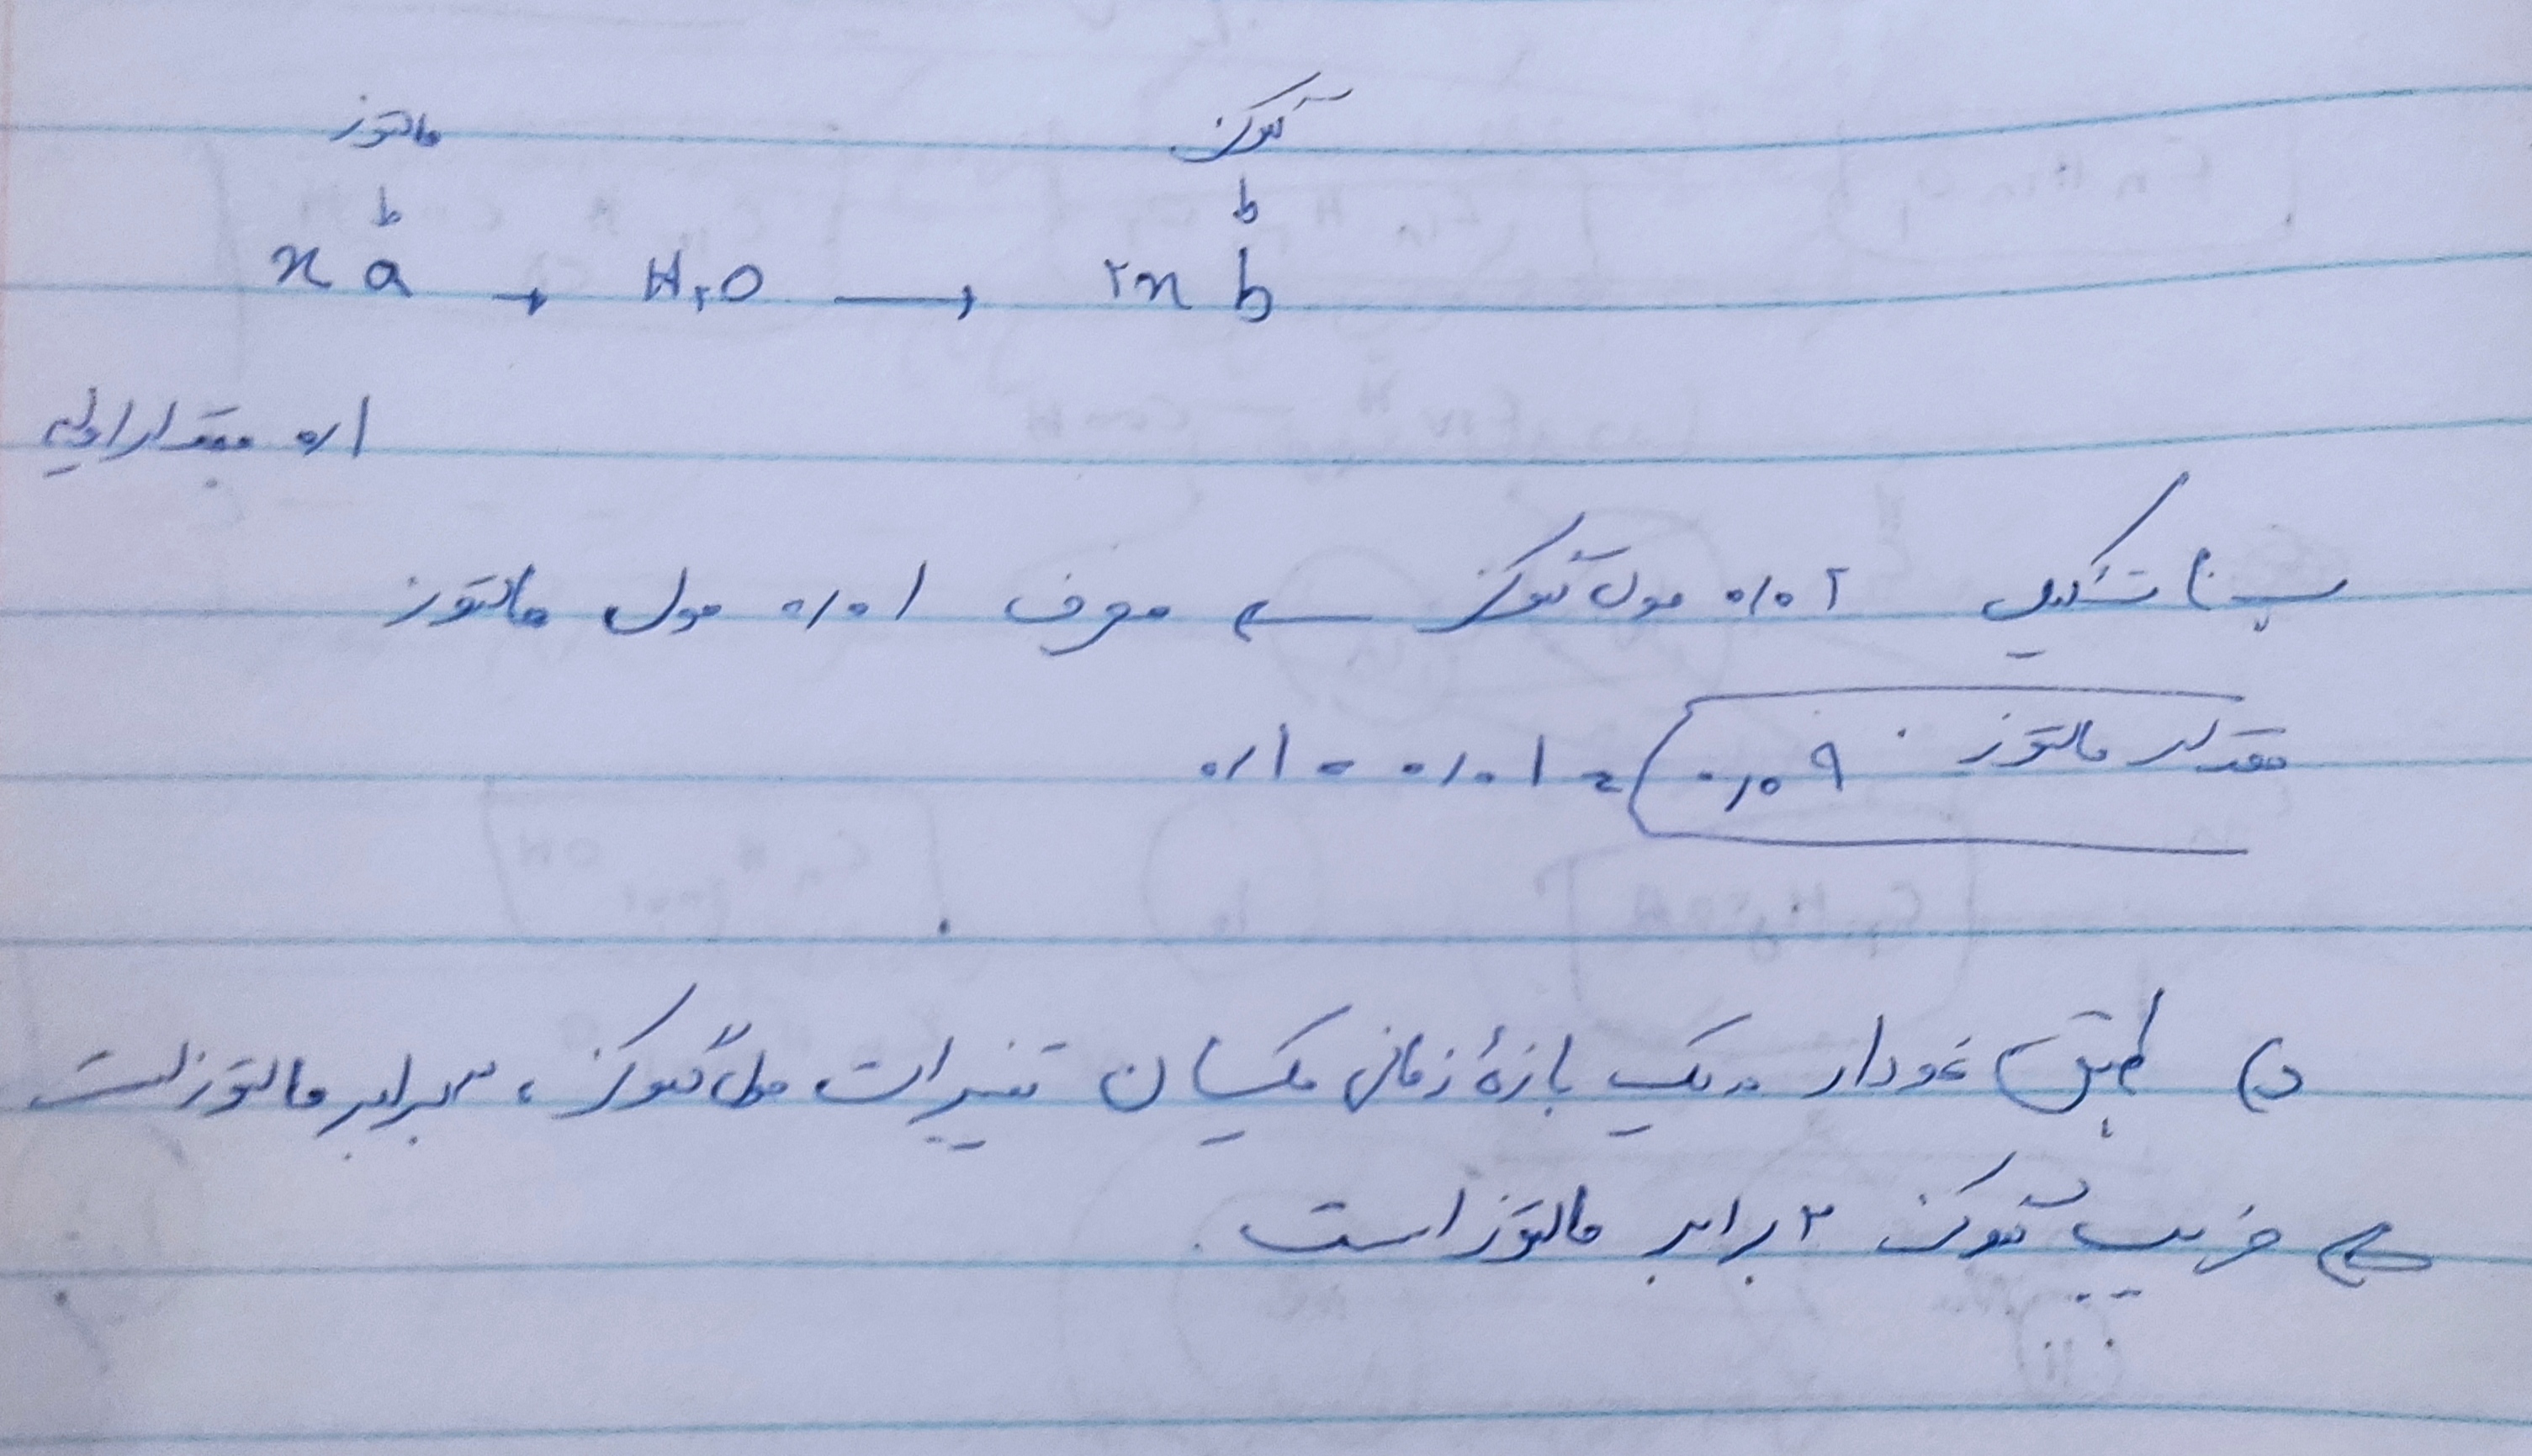 مالتوز گلوکز
b b
x a + H₂O ⟶ ۲x b
۰/۱ مقدار اولیه
پس با تشکیل ۰/۰۲ مول گلوکز ← مصرف ۰/۰۱ مول مالتوز
مقدار مالتوز ۰/۰۹ = ۰/۰۱ - ۰/۱
د) طبق نمودار در یک بازهٔ زمانی یکسان تغییرات مول گلوکز، ۲ برابر مالتوز است
← ضریب گلوکز ۲ برابر مالتوز است.